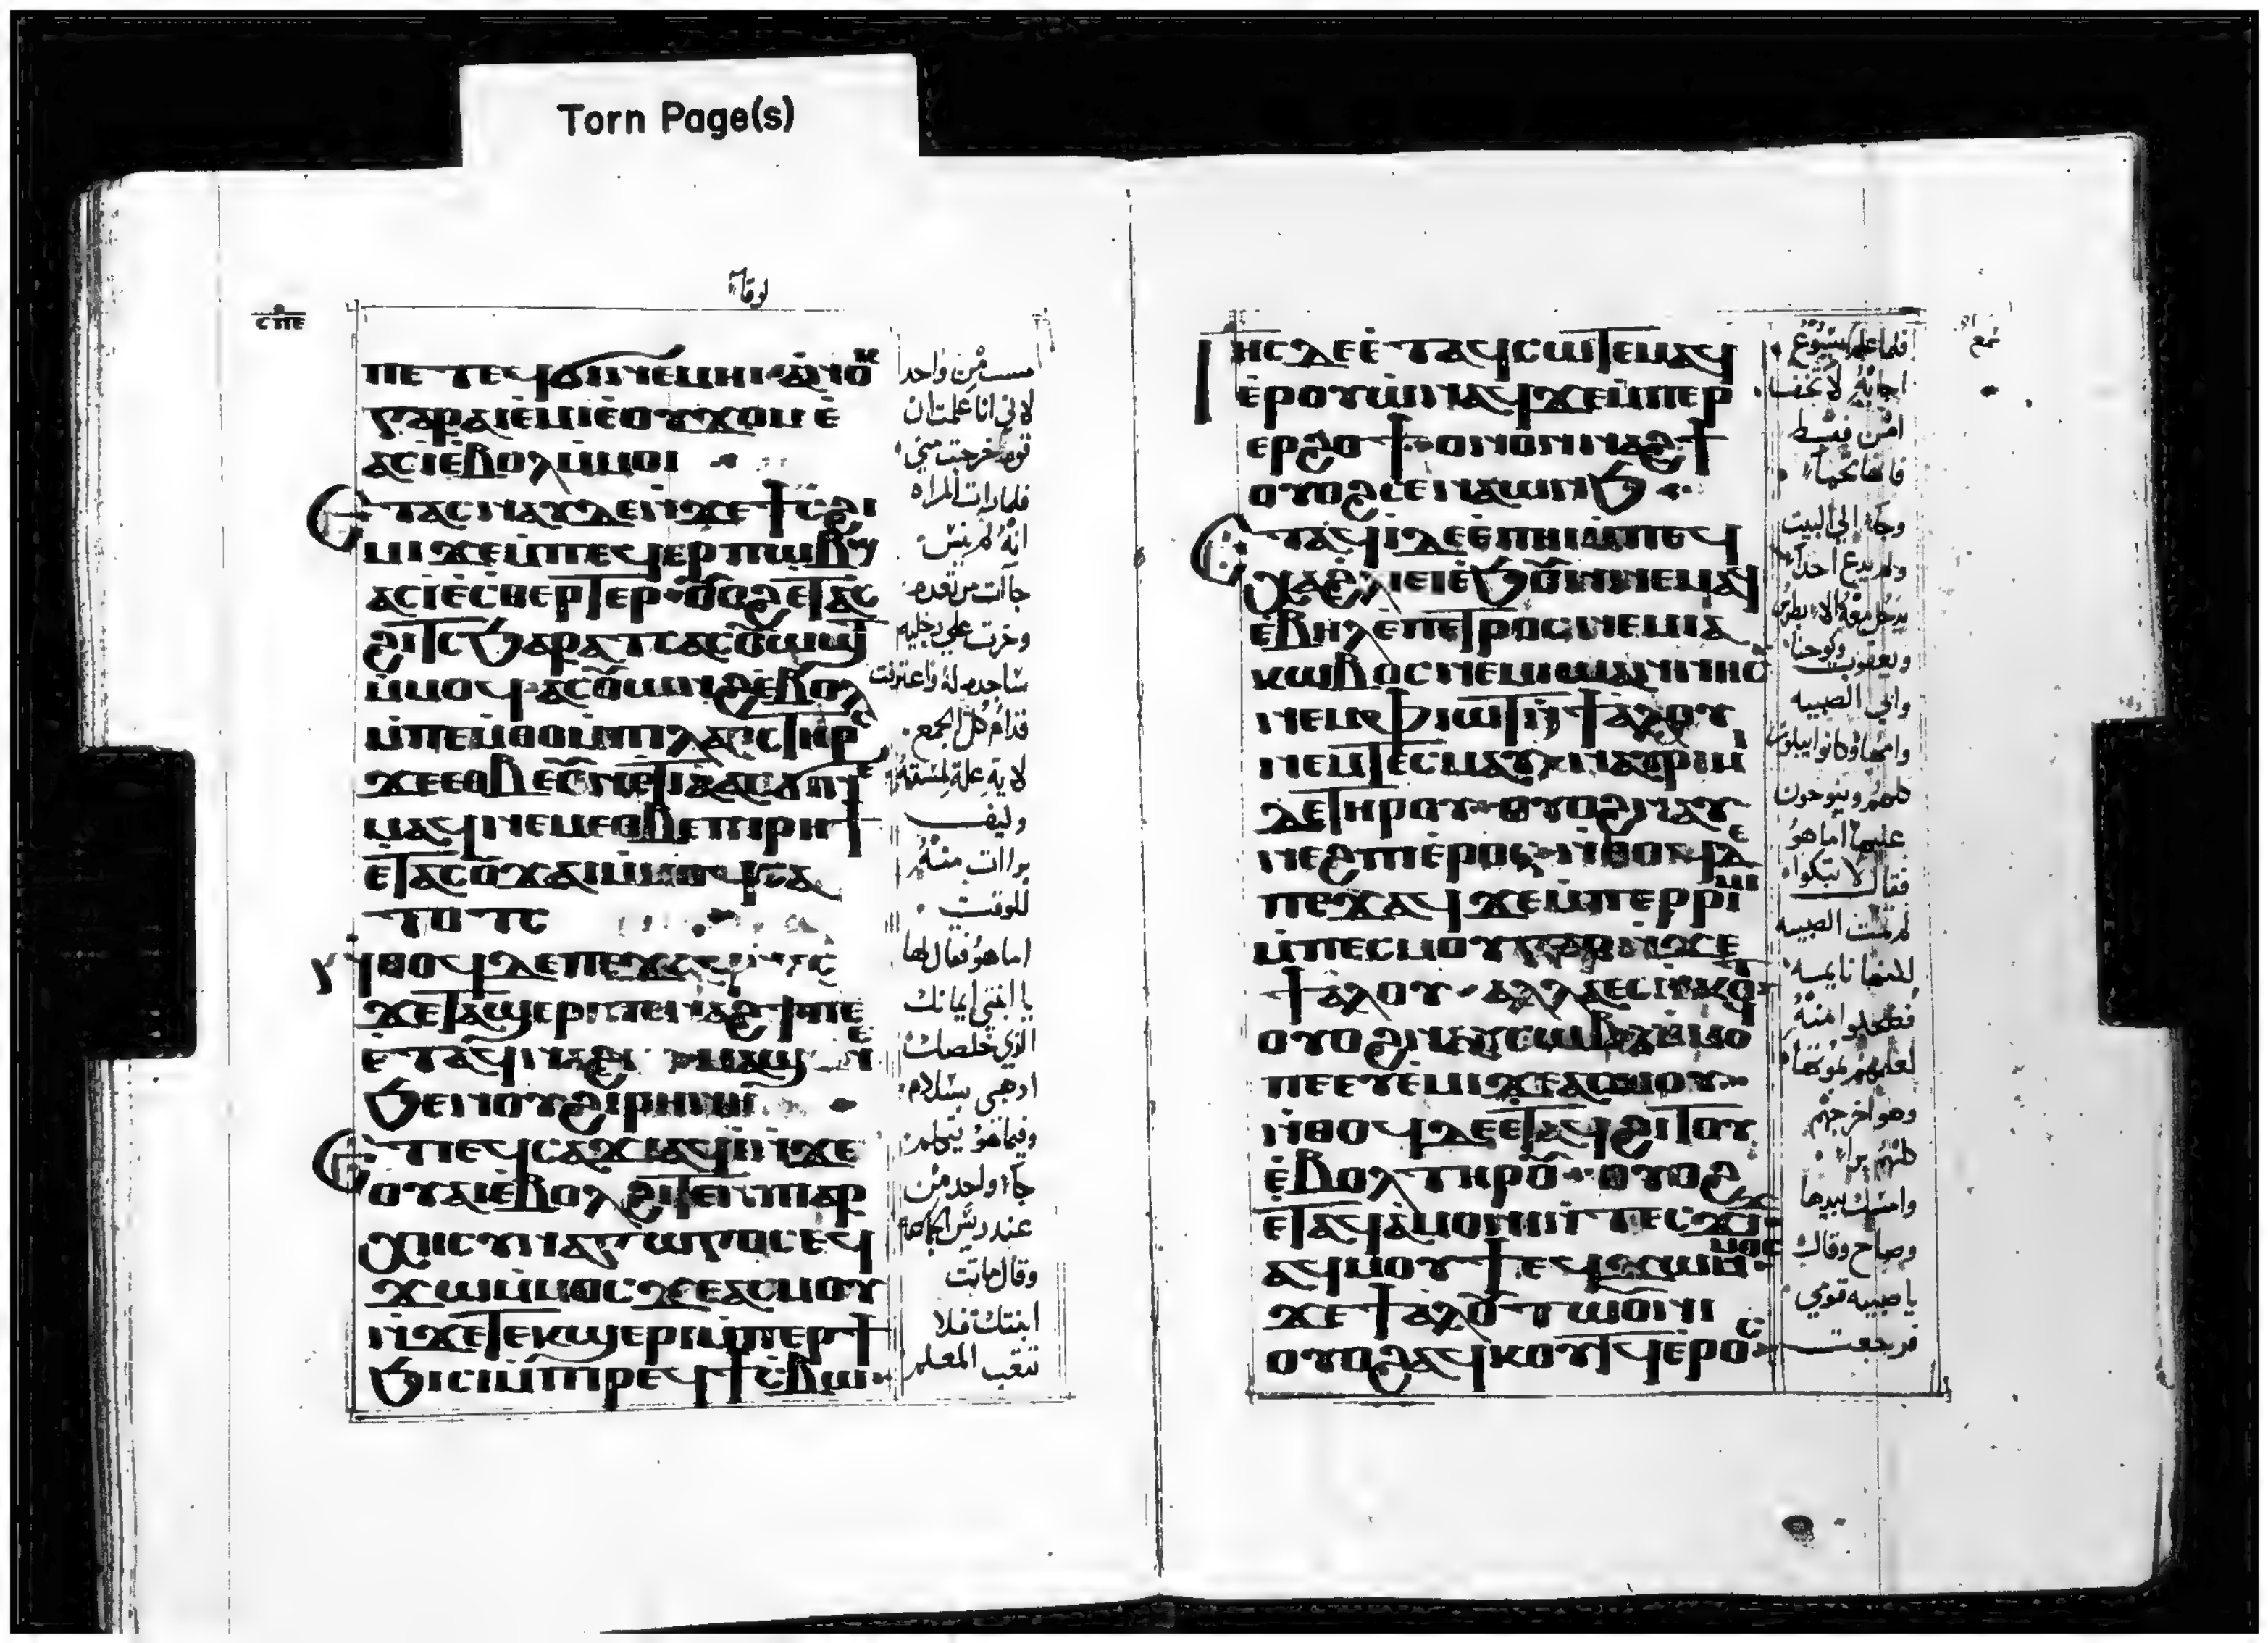 Torn Page(s)
لوقا
ⲥⲡⲉ
ⲡⲉ ⲧⲉϥϭⲓⲛⲉⲙⲏⲓ ⲁⲛⲟⲕ
ⲅⲁⲣ ⲁⲓⲉⲙⲓ ⲉⲟⲩϫⲟⲙ ⲉ
ⲁⲥⲓ ⲉⲃⲟⲗ ⲙⲙⲟⲓ
ⲉⲧⲁⲥⲛⲁⲩ ⲇⲉ ⲛϫⲉ ϯⲥϩⲓ
ⲙⲓ ϫⲉ ⲙⲡⲉϥⲉⲣⲡⲱⲃϣ
ⲁⲥⲓ ⲉⲥⲑⲉⲣⲧⲉⲣ ⲟⲩⲟϩ ⲉⲧⲁⲥ
ϩⲓⲧⲥ ϧⲁⲣⲁⲧϥ ⲁⲥⲟⲩⲱϣⲧ
ⲙⲙⲟϥ ⲁⲥⲟⲩⲱⲛϩ ⲉⲃⲟⲗ
ⲙⲡⲉⲙⲑⲟ ⲙⲡⲓⲗⲁⲟⲥ ⲧⲏⲣϥ
ϫⲉ ⲉⲑⲃⲉ ⲟⲩ ⲛⲉⲧⲓⲁ ⲁⲥϭⲓ ⲛⲉ
ⲙⲁϥ ⲛⲉⲙ ⲉⲑⲃⲉ ⲡⲓⲣⲏϯ
ⲉⲧⲁⲥⲟⲩϫⲁⲓ ⲙⲙⲟϥ ⲥⲁ
ⲧⲟⲧⲥ
ⲛⲑⲟϥ ⲇⲉ ⲡⲉϫⲁϥ ⲛⲁⲥ
ϫⲉ ⲧⲁϣⲉⲣⲓ ⲡⲉⲛⲁϩϯ ⲡⲉ
ⲉⲧⲁϥⲛⲁϩⲙⲓ ⲙⲁϣⲉ ⲛⲉ
ϧⲉⲛ ⲟⲩϩⲓⲣⲏⲛⲏ
ⲉⲧⲓ ⲉϥⲥⲁϫⲓ ⲁϥⲓ ⲛϫⲉ
ⲟⲩⲁⲓ ⲉⲃⲟⲗ ϩⲓⲧⲉⲛ ⲡⲓⲁⲣ
ⲭⲏⲥⲩⲛⲁⲅⲱⲅⲟⲥ ⲉϥ
ϫⲱ ⲙⲙⲟⲥ ϫⲉ ⲁⲥⲙⲟⲩ
ⲛϫⲉ ⲧⲉⲕϣⲉⲣⲓ ⲙⲡⲉⲣϯ
ϧⲓⲥⲓ ⲙⲡⲓⲣⲉϥϯⲥⲃⲱ
مست من واحد
لاني انا علمت ان
قوه خرجت مني
فلما رات المراه
انه لم ينس
جاآت مرتعده
وخرت علي رجليه
ساجده له واعترفت
قدام كل الجمع
لايه علة لمسته
وكيف
براات منه
للوقت
اما هو فقال لها
يا ابنتي ايمانك
الذي خلصك
اذهبي بسلام
وفيما هو يتكلم
جاء واحد من
عند رييس الجماعه
وقال ماتت
ابنتك فلا
تتعب المعلم
ⲓⲏⲥ ⲇⲉ ⲉⲧⲁϥⲥⲱⲧⲉⲙ ⲁϥ
ⲉⲣⲟⲩⲱ ⲛⲁϥ ϫⲉ ⲙⲡⲉⲣ
ⲉⲣϩⲟϯ ⲙⲟⲛⲟⲛ ⲛⲁϩϯ
ⲟⲩⲟϩ ⲥⲉⲛⲁⲱⲛϧ
ⲉⲧⲁϥⲓ ⲇⲉ ⲉⲡⲏⲓ ⲙⲡⲉϥ
ⲭⲁϩⲗⲓ ⲉⲓ ⲉϧⲟⲩⲛ ⲛⲉⲙⲁϥ
ⲉⲃⲏⲗ ⲉⲡⲉⲧⲣⲟⲥ ⲛⲉⲙ ⲓⲁ
ⲕⲱⲃⲟⲥ ⲛⲉⲙ ⲓⲱⲁⲛⲛⲏⲥ
ⲛⲉⲙ ⲫⲓⲱⲧ ⲛϯⲁⲗⲟⲩ
ⲛⲉⲙ ⲧⲉⲥⲙⲁⲩ ⲛⲁⲩⲣⲓⲙⲓ
ⲇⲉ ⲧⲏⲣⲟⲩ ⲟⲩⲟϩ ⲛⲁⲩ
ⲛⲉϩⲡⲓ ⲉⲣⲟⲥ ⲛⲑⲟϥ ⲇⲉ
ⲡⲉϫⲁϥ ϫⲉ ⲙⲡⲉⲣⲣⲓⲙⲓ
ⲙⲡⲉⲥⲙⲟⲩ ⲅⲁⲣ ⲛϫⲉ
ϯⲁⲗⲟⲩ ⲁⲗⲗⲁ ⲉⲥⲛⲕⲟⲧ
ⲟⲩⲟϩ ⲛⲁⲩⲥⲱⲃⲓ ⲙⲙⲟϥ
ⲡⲉ ⲉⲩⲉⲙⲓ ϫⲉ ⲁⲥⲙⲟⲩ
ⲛⲑⲟϥ ⲇⲉ ⲉⲧⲁϥϩⲓⲧⲟⲩ
ⲉⲃⲟⲗ ⲧⲏⲣⲟⲩ ⲟⲩⲟϩ
ⲉⲧⲁϥⲁⲙⲟⲛⲓ ⲛⲧⲉⲥϫⲓϫ
ⲁϥⲙⲟⲩϯ ⲉϥϫⲱ ⲙⲙⲟⲥ
ϫⲉ ϯⲁⲗⲟⲩ ⲧⲱⲟⲩⲛⲓ
ⲟⲩⲟϩ ⲁϥⲕⲟⲧϥ ⲉⲣⲟⲥ
فلما علم يسوع
اجابه لا تخف
امن فقط
فانها تحيا
وجاء الي البيت
ولم يدع احدا
يدخل معه الا بطرس
ويعقوب ويوحنا
وابي الصبيه
وامها وكانوا يبكون
كلهم وينوحون
عليها اما هو
فقال لا تبكوا
لم تمت الصبيه
لكنها نايمه
فضحكوا منه
لعلمهم بموتها
وهو اخرجهم
كلهم برا
وامسك بيدها
وصاح وقال
يا صبيه قومي
فرجعت